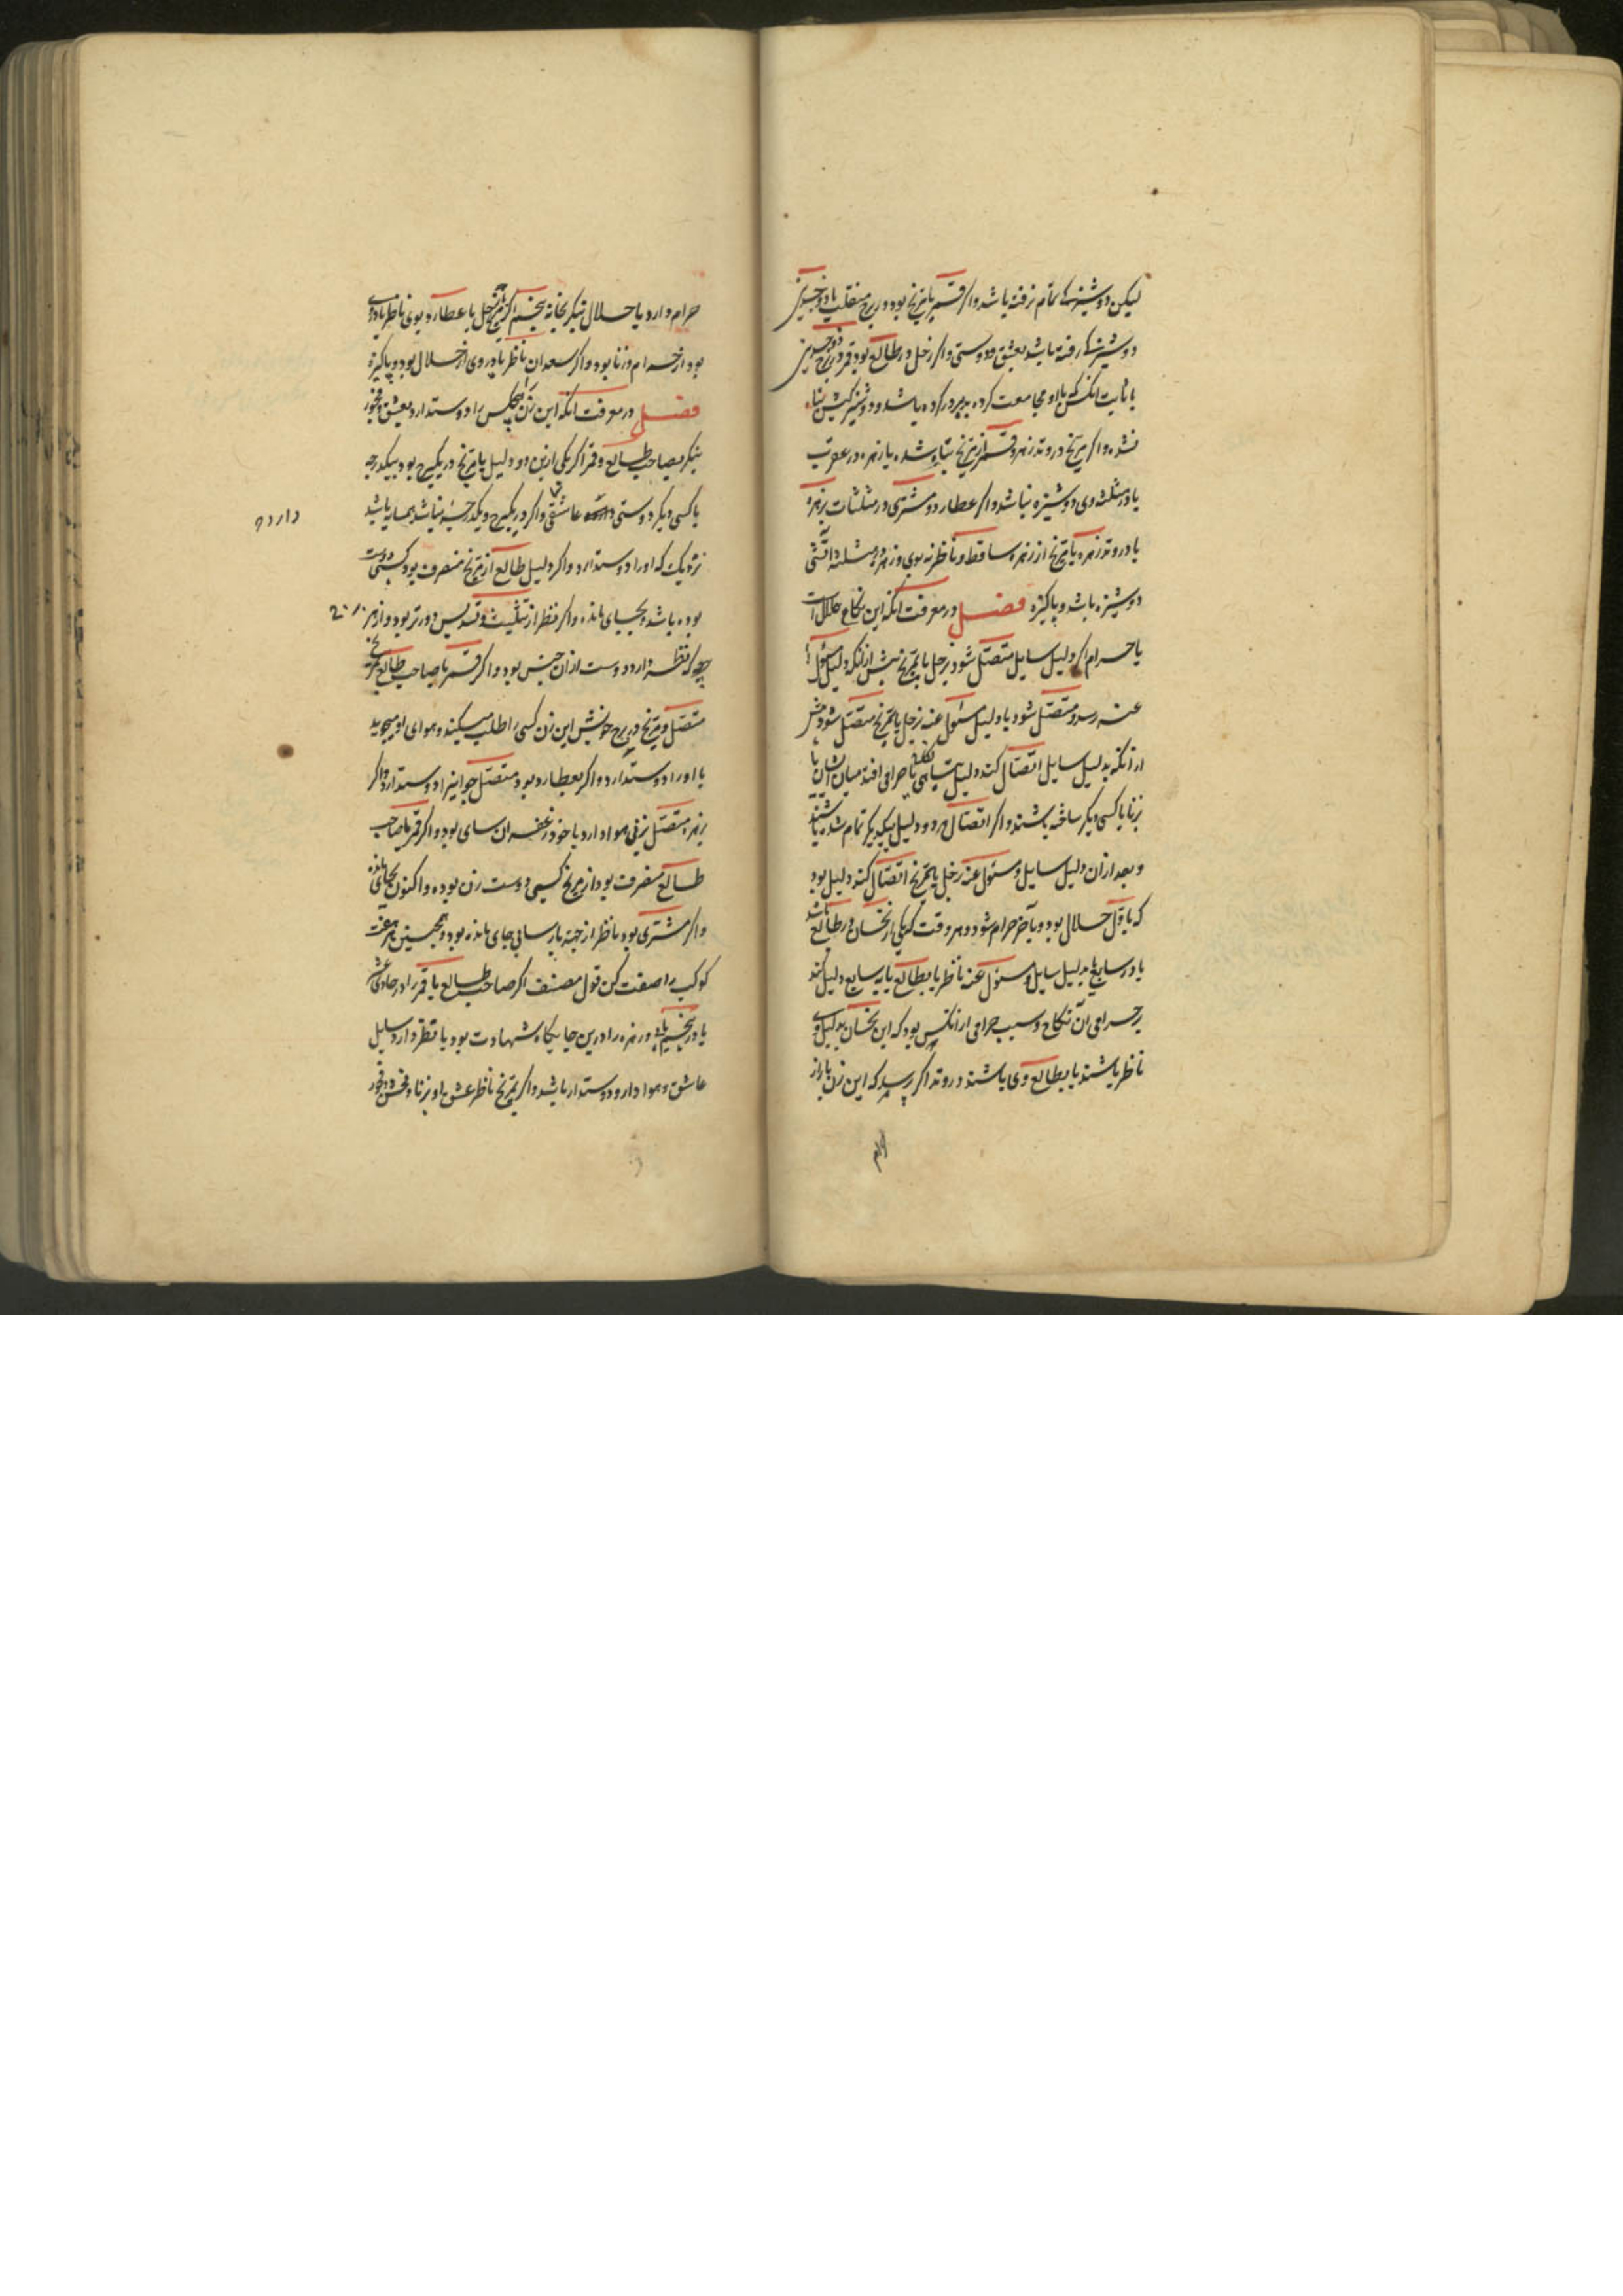 لیکن دوشیزکی تمام نرفته باشد و اکر قمر با مریخ بود در برج منقلب یا دو جسدین
دوشیزکی رفته باشد بعشق و دوستی و اکر زحل در طالع بود و قمر در برج دو جسدین
یا ثابت انکس که با او مجامعت کرده کرده باشد و دوشیزکیش تباه
نشده و اکر مریخ در وتد زهره و قمر از مریخ تباه شده یا زهره در عقرب
یا در مثلثه وی دوشیزه نباشد و اکر عطارد و مشتری در مثلثات زهره
یا در وتد زهره یا مریخ از زهره ساقط و ناظر نه بوی و زهره در مثلثه آتشی
دوشیزه باشد و پاکیزه فصل در معرفت انکه این نکاح حلال است
یا حرام اکر دلیل سایل متصل شود بزحل یا بمریخ پیش از انکه دلیل مسئول
عنه رسد و متصل شود یا دلیل مسئول عنه بزحل یا بمریخ متصل شود پیش
از انکه بدلیل سایل اتصال کند دلیل حرامی افتد میان ایشان یا
بزنا با کسی دیکر ساخته باشند و اکر اتصال هر دو دلیل بیکدیکر تمام شده باشند
و بعد از ان دلیل سایل و مسئول عنه بزحل یا بمریخ اتصال کند دلیل بود
که باول حلال بود و بآخر حرام شود و هر وقت که یکی از نحسان در طالع باشد
یا در سابع یا بدلیل سایل و مسئول عنه ناظر یا بطالع یا بسابع دلیل کند
بر حرامی آن نکاح و سبب حرامی از انکس بود که این نحسان بدلیل وی
ناظر باشند یا بطالع وی باشند در وتد اکر پرسد که این زن باردار
حرام
حرام دارد یا حلال بنکر بخانه پنجم اکر مریخ یا زحل یا عطارد بوی ناظر یا در وی
بود از حرام و زنا بود و اکر سعدان ناظر یا در وی از حلال بود و پاکیزه
فصل در معرفت انکه این زن هیچکس را دوست دارد بعشق و فجور
بنکر بصاحب طالع و قمر اکر یکی ازین دو دلیل با مریخ در یکبرج بود بیکدرجه
با کسی دیکر دوستی عاشقی و اکر در یکبرج و یکدرجه نباشد همسایه باشد
دارد و
نزدیک که او را دوست دارد و اکر دلیل طالع از مریخ منصرف بود کسی دوست
بوده باشد بجای مانده و اکر نظر از تثلیث و تسدیس دورتر بود و از هر
چه که نظر دارد دوست از ان جنس بود و اکر قمر با صاحب طالع بمریخ
متصل و مریخ در برج خویش این زن کسی را طلب میکند و هوای او میجوید
یا او را دوست دارد و اکر بعطارد بود متصل جوانیرا دوست دارد و اکر
بزهره متصل بزنی هوا دارد یا خود زعفران سای بود و اکر قمر یا صاحب
طالع منصرف بود از مریخ کسی دوست زن بوده و اکنون بجای مانده
و اکر مشتری بود ناظر از جهته پارسایی جای مانده بود و همچنین هر
کوکب را صفت کن قول مصنف اکر صاحب طالع یا قمر را در حادی عشر
یا در پنجم یابی و زهره را درین جایکاه شهادت بود یا نظر دارد سایل
عاشق و هوا دارد و دوستدار باشد و اکر بمریخ ناظر عشق با و بزنا و فحش و فجور